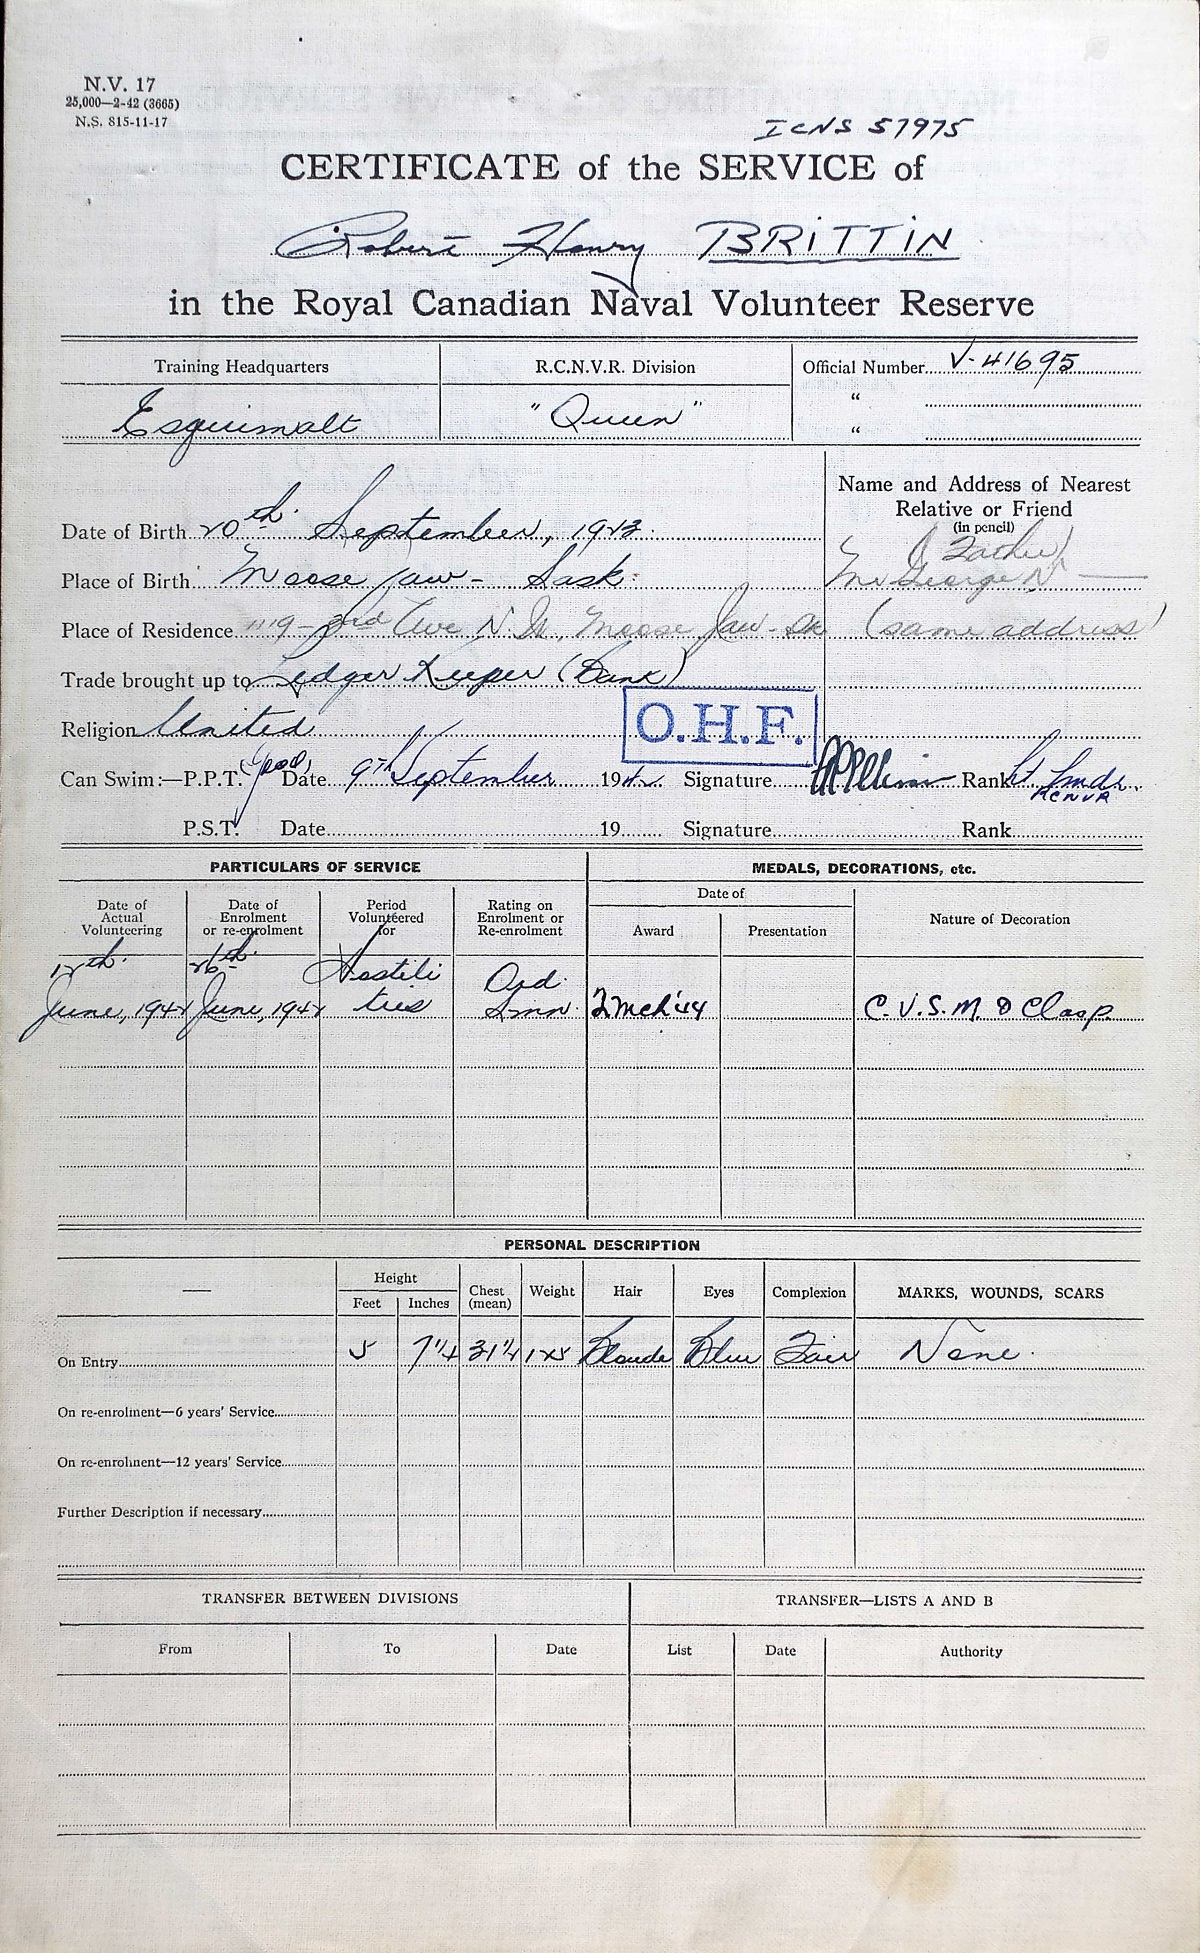 N.V. 17
25,000—2-42 (3665)
N.S. 815-11-17
ICNS 57975
CERTIFICATE of the SERVICE of
Robert Henry BRITTIN
in the Royal Canadian Naval Volunteer Reserve
Training Headquarters R.C.N.V.R. Division Official Number V-41695
Esquimalt "Queen" "
"
Name and Address of Nearest
Relative or Friend
(in pencil)
Date of Birth 20th September, 1923. (Father)
Place of Birth Moose Jaw - Sask. Mr George N
Place of Residence 1119 - 3rd Ave N.W., Moose Jaw - Sk (same address)
Trade brought up to Ledger Keeper (Bank)
Religion United
O.H.F.
Can Swim:—P.P.T. (good) Date 9th September 1942 Signature Rank Lt. Cmdr.
RCNVR
P.S.T. Date 19 Signature Rank
PARTICULARS OF SERVICE MEDALS, DECORATIONS, etc.
Date of Actual Volunteering Date of Enrolment or re-enrolment Period Volunteered for Rating on Enrolment or Re-enrolment Date of Nature of Decoration
Award Presentation
12th 26th Hostili Ord
June, 1942 June, 1942 ties Smn 2 Mch '44 C.V.S.M. & Clasp.
PERSONAL DESCRIPTION
— Height Chest (mean) Weight Hair Eyes Complexion MARKS, WOUNDS, SCARS
Feet Inches
On Entry 5 7¼ 31¼ 125 Blonde Blue Fair None.
On re-enrolment—6 years' Service
On re-enrolment—12 years' Service
Further Description if necessary
TRANSFER BETWEEN DIVISIONS TRANSFER—LISTS A AND B
From To Date List Date Authority